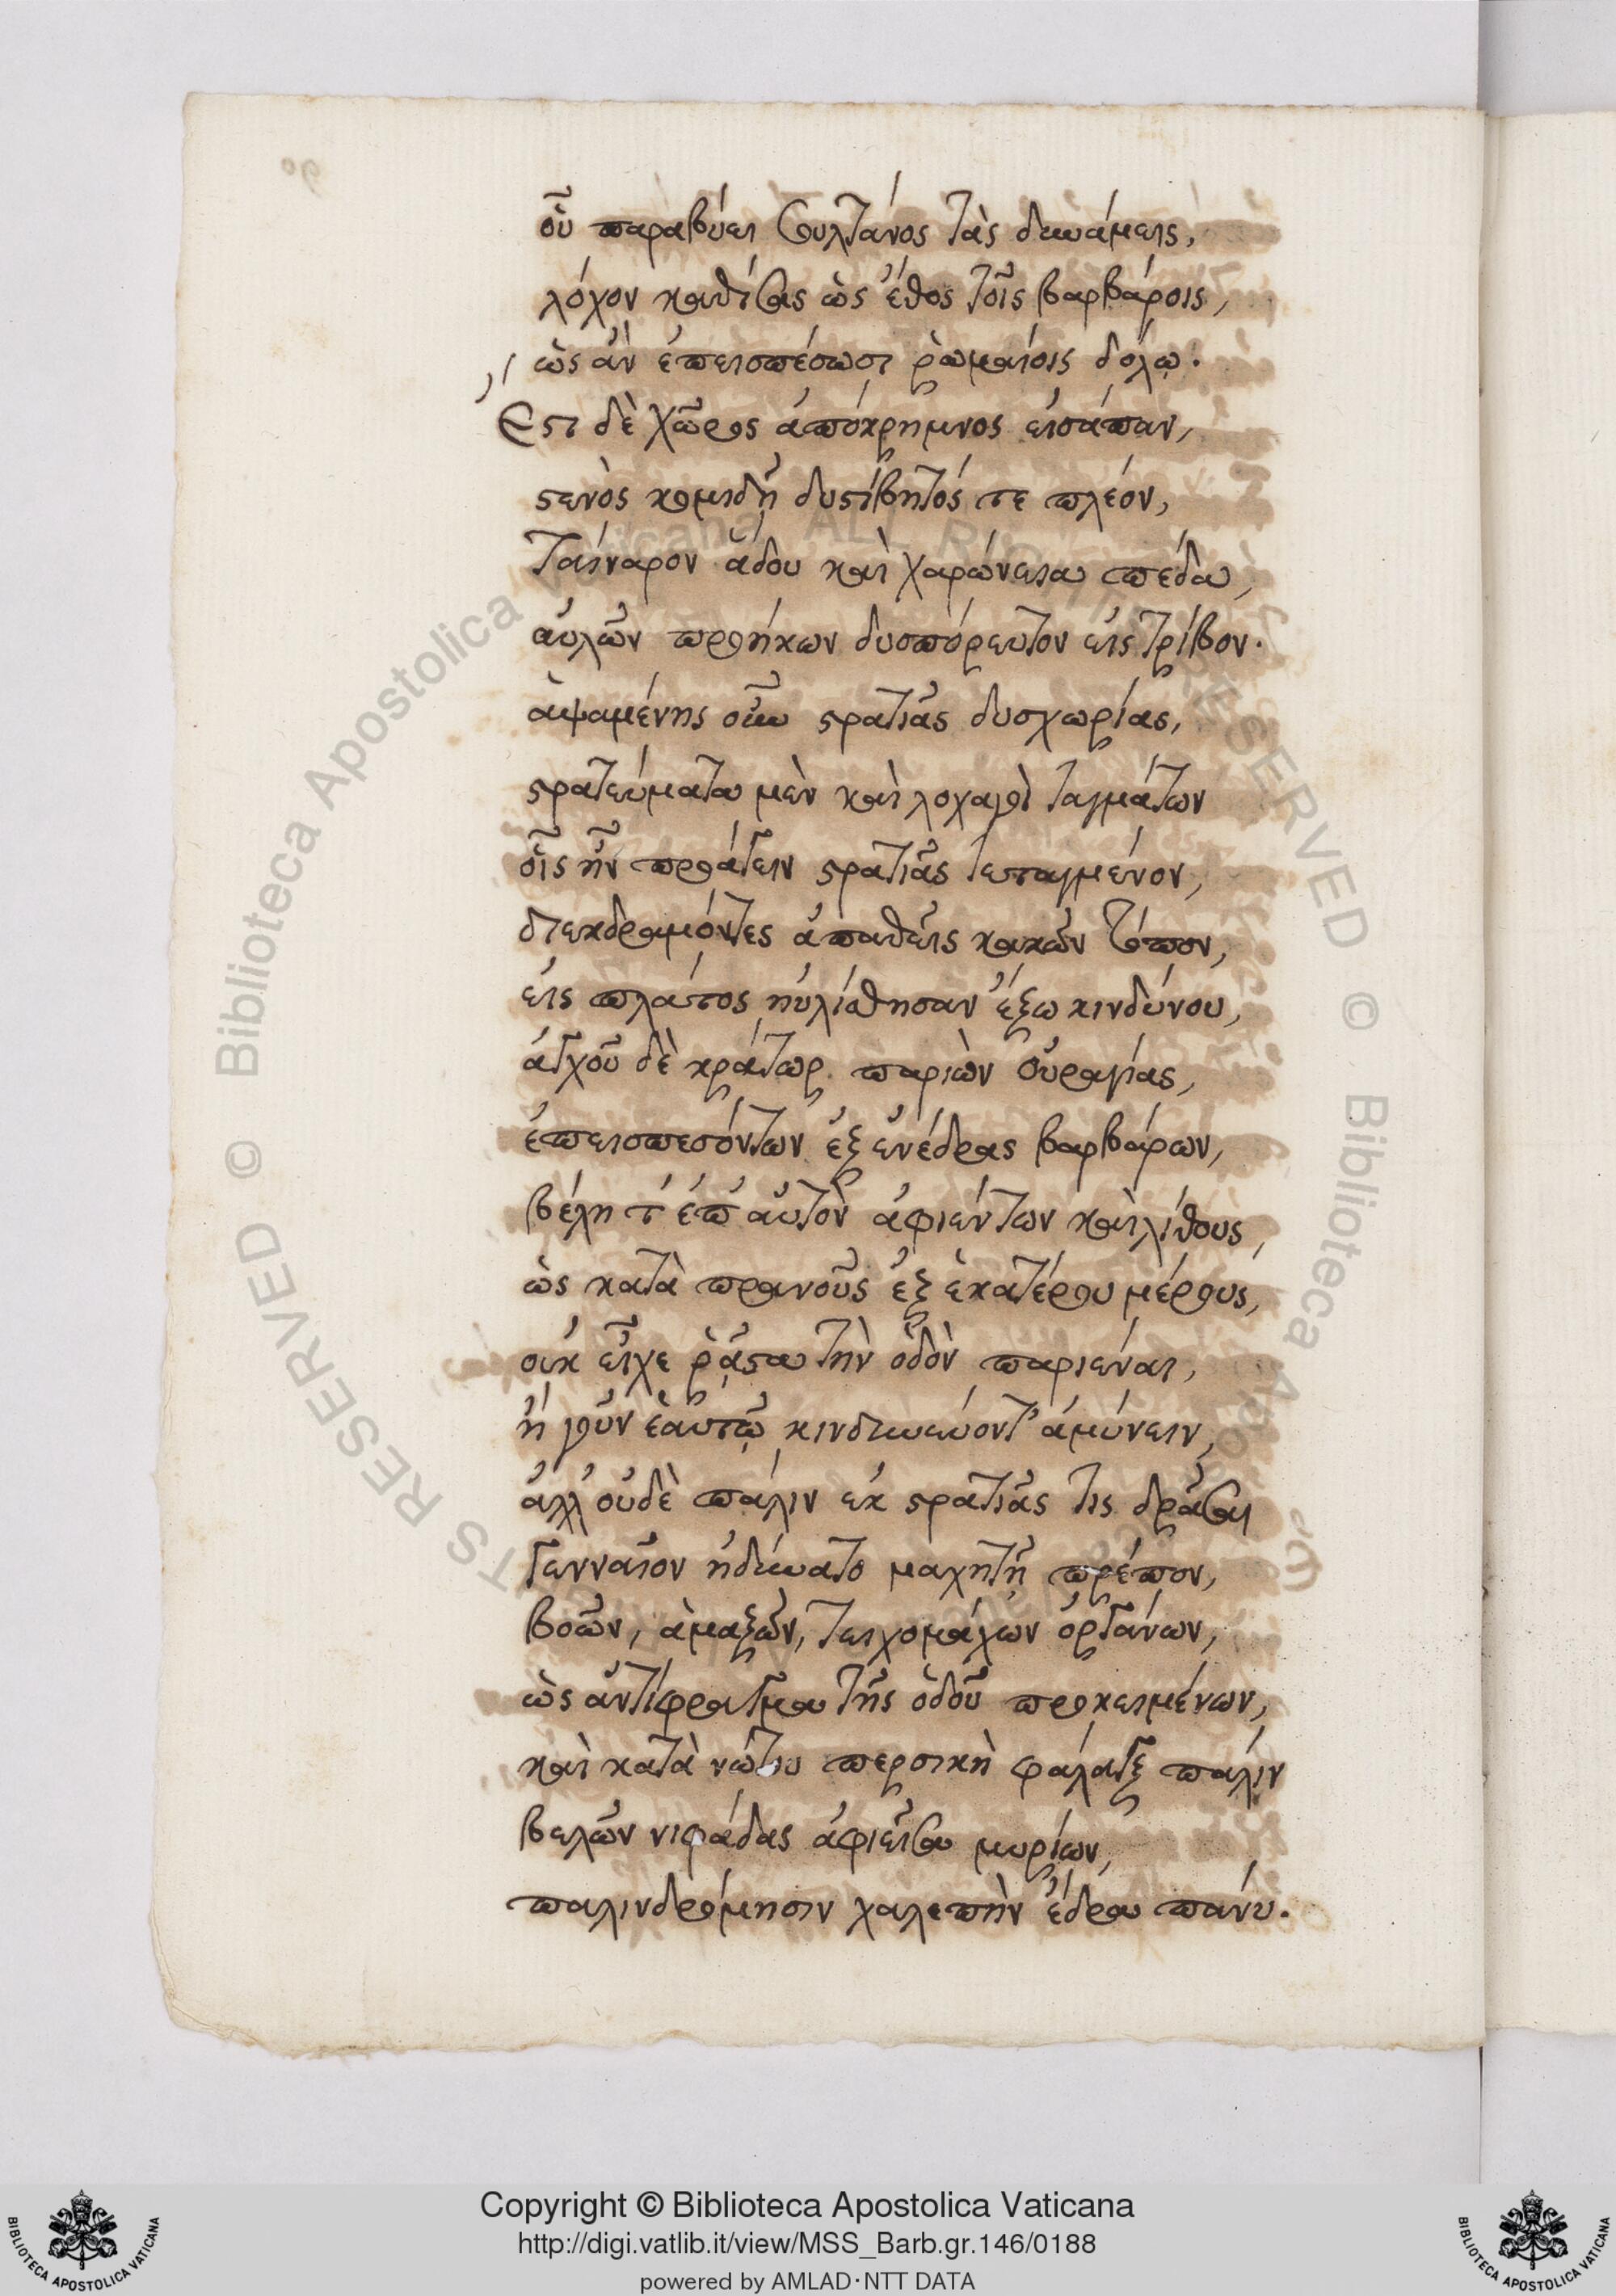 οὗ παραβύει σουλτάνος τὰς δυνάμεις,
λόχον καθίσας ὡς ἔθος τοῖς βαρβάροις,
ὡς ἂν ἐπεισπέσωσι ῥωμαίοις δόλῳ.
Ἔστι δὲ χῶρος ἀπόκρημνος εἰσάπαν,
στενὸς κομιδῇ δυστίβητός τε πλέον,
Ταίναρον ᾅδου καὶ χαρώνεια πέδα,
αὐλῶν προήκων δυσπόρευτον εἰς τρίβον.
ἁψαμένης οὖν στρατιᾶς δυσχωρίας,
στρατεύματα μὲν καὶ λοχαγοὶ ταγμάτων
οἷς ἦν προάγειν στρατιᾶς τεταγμένον,
διεκδραμόντες ἀπαθεῖς κακῶν τόπον,
εἰς πλάτος ηὐλίσθησαν ἔξω κινδύνου,
ἀγχοῦ δὲ κράτωρ παριὼν οὐραγίας,
ἐπεισπεσόντων ἐξ ἐνέδρας βαρβάρων,
βέλη τ' ἐπ' αὐτὸν ἀφιέντων καὶ λίθους,
ὡς κατὰ πρανοῦς ἐξ ἑκατέρου μέρους,
οὐκ εἶχε ῥᾷστα τὴν ὁδὸν παριέναι,
ἢ γοῦν ἑαυτῷ κινδυνεύοντ' ἀμύνειν,
ἀλλ' οὐδὲ πάλιν ἐκ στρατιᾶς τις δρᾶσαι
γενναῖον ἠδύνατο μαχητῇ πρέπον,
βοῶν, ἁμαξῶν, τειχομάχων ὀργάνων,
ὡς ἀντίφραγμα τῆς ὁδοῦ προκειμένων,
καὶ κατὰ νώτου περσικὴ φάλαγξ πάλιν
βελῶν νιφάδας ἀφιεῖσα μυρίων,
παλινδρόμησιν χαλεπὴν ἔδρα πάνυ.
Copyright © Biblioteca Apostolica Vaticana
http://digi.vatlib.it/view/MSS_Barb.gr.146/0188
powered by AMLAD·NTT DATA